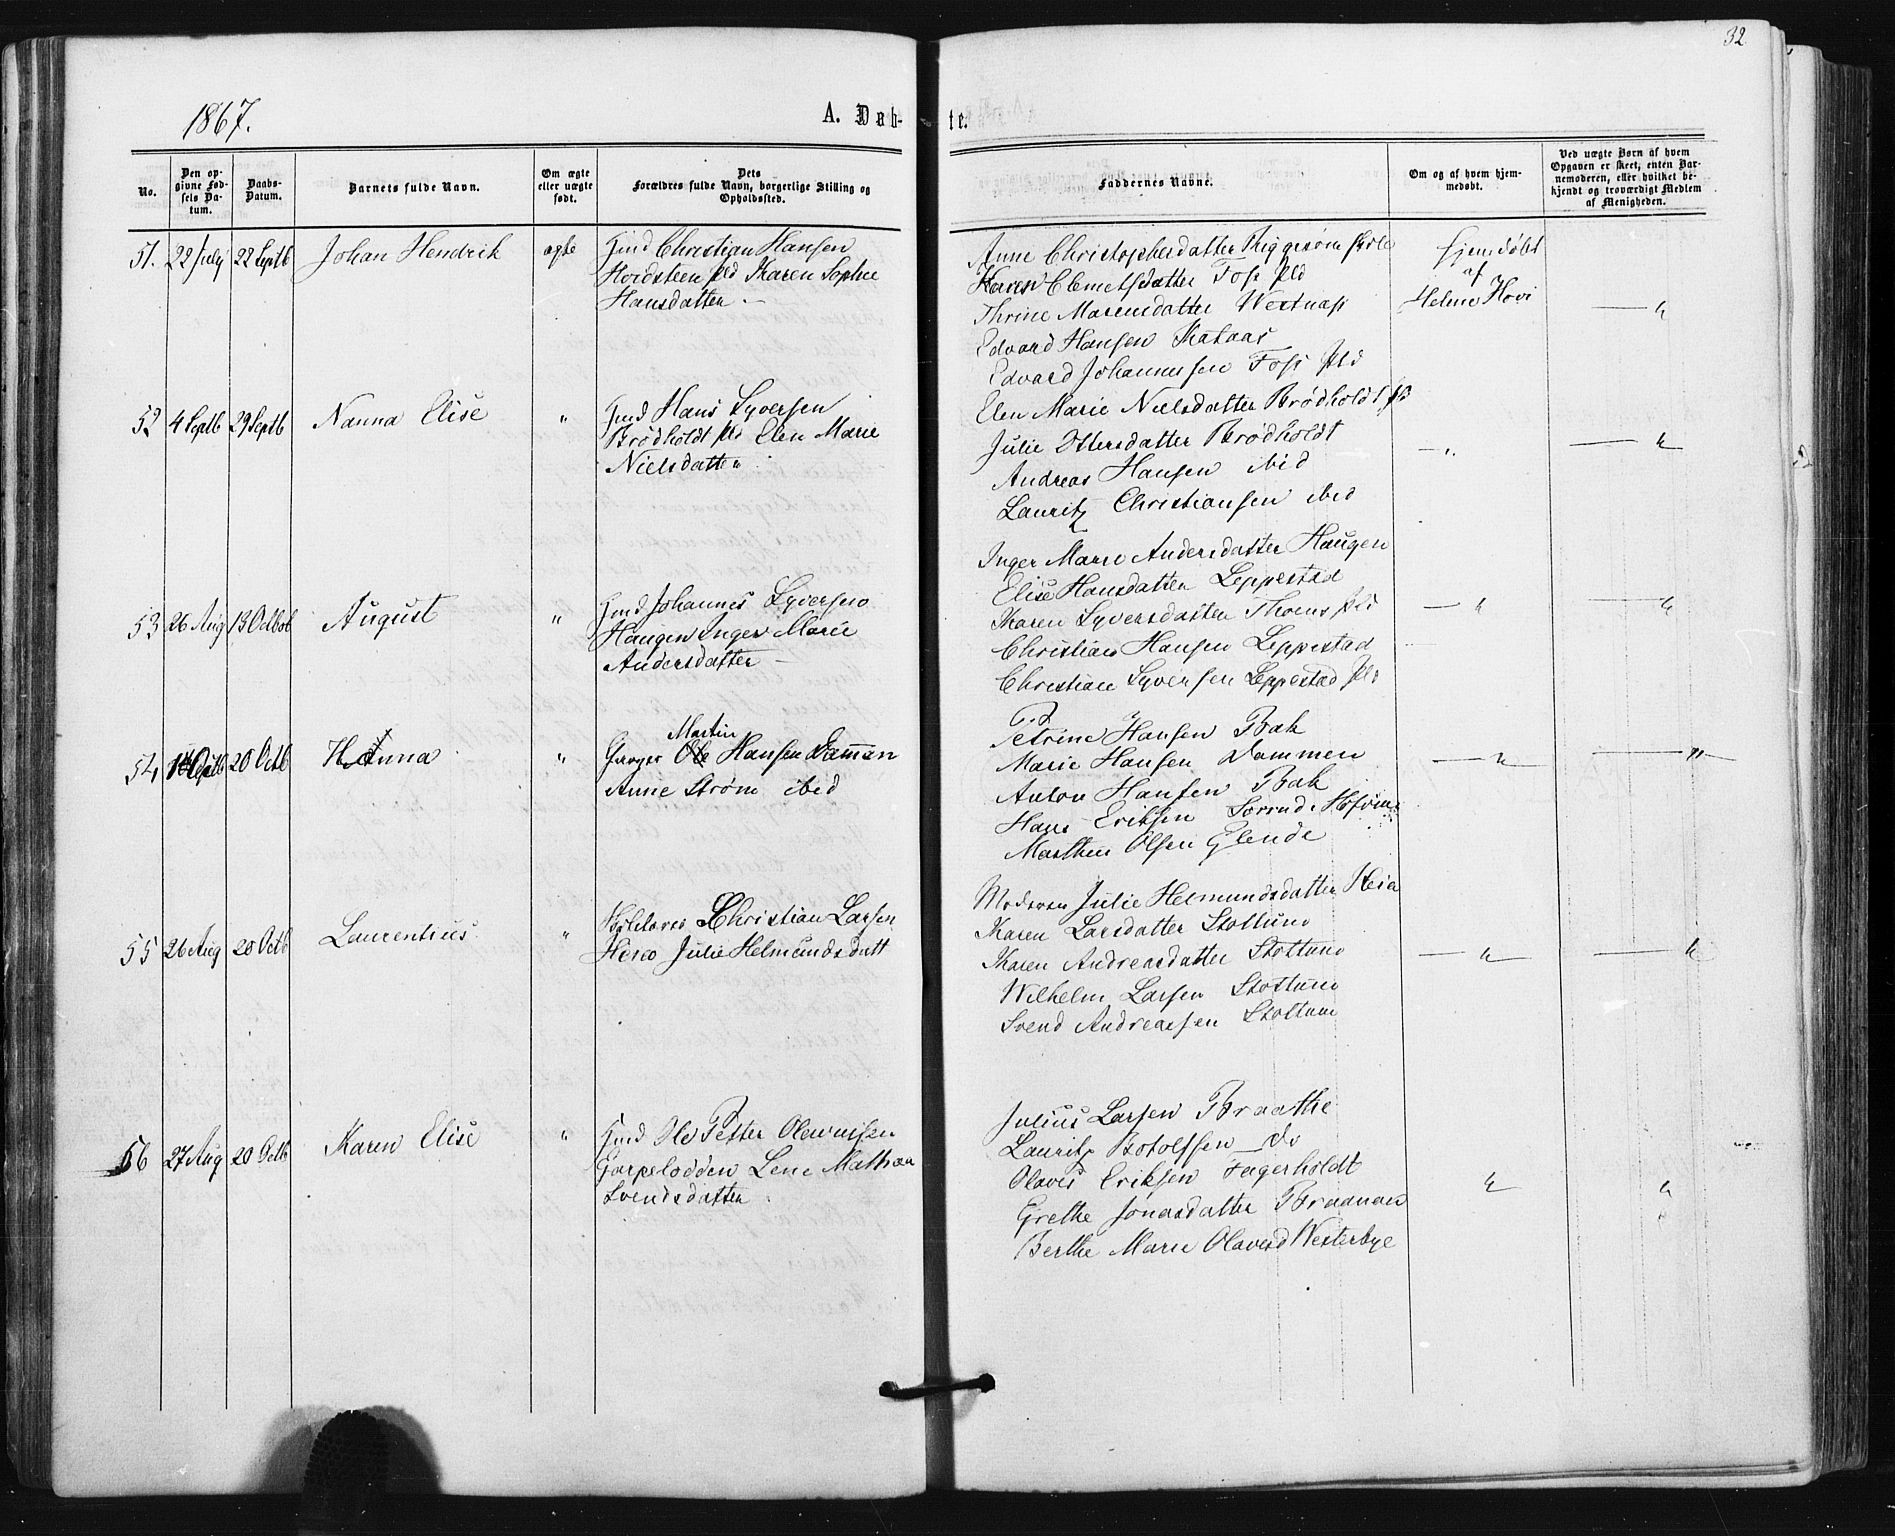 32
1867.
A. Døb-
te.
No.
Den op-
givne Fød-
sels Da-
tum.
Daabs-
Datum.
Barnets fulde Navn.
Om ægte
eller uægte
født.
Dets
Forældres fulde Navn, borgerlige Stilling og
Opholdssted.
Faddernes Navne.
Om og af hvem hjem-
medøbt.
Ved uægte Børn af hvem
Opgaven er skeet, enten Bar-
nemoderen, eller hvilket be-
kjendt og troværdigt Medlem
af Menigheden.
51. 22 July 22 Septb Johan Hendrik ægte Gmd Christian Hansen
Hordsteen Pld Karen Sophie
Hansdatter
Anne Christophersdatter
Karen Clemetsdatter Foss Pld
Thrine Marensdatter Westnæss
Edvard Hansen Kataas
Edvard Johannessen Foss Pld
Hjemdøbt
af
Helene Hovi
52 4 Septb 29 Septb Nanna Elise " Gmd Hans Syversen
Brødholdt Pld Elen Marie
Nielsdatter
Elen Marie Nielsdatter Brødholdt Pld
Julie Ottersdatter Brødholdt
Andreas Hansen ibid
Lauritz Christiansen ibid
53 26 Aug 13 Octob August " Gmd Johannes Syversen
Haugen Inger Marie
Andersdatter
Inger Marie Andersdatter Haugen
Elise Hansdatter Leppestad
Karen Syversdatter Pld
Christian Hansen Leppestad
Christian Syversen Leppestad Pld
54 Septb 20 Octb Hanna " Martin
Ole Hansen Damman
Anne Strøm ibid
Petrine Hansen Bak
Marie Hansen Dammen
Anton Hansen Bak
Hans Eriksen
Marthin Olsen Glende
55 26 Aug 20 Octb Laurentius " Christian Larsen
Julie Helmundsdatt
Moderen Julie Helmundsdatter Heia
Karen Larsdatter Stottund
Karen Andreasdatter Stottund
Wilhelm Larsen Stottund
Svend Andreassen Stottum
56 27 Aug 20 Octb Karen Elise " Gmd Ole Petter Olavussen
Garpelødden Lene Mathea
Svendsdatter
Julius Larsen Braathe
Lauritz Botolfsen do
Olaves Eriksen Fagerholdt
Grethe Jonasdatter Braanan
Berthe Marie Olavesd Westerbye